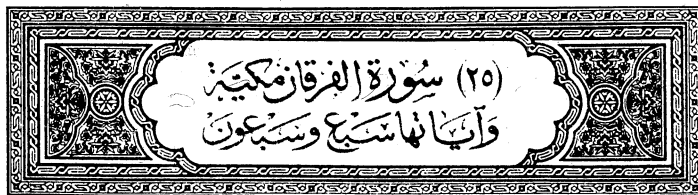 (٢٥) سُورَة الفرقان مكيّة
وَآيَاتها سَبع وَسَبعون